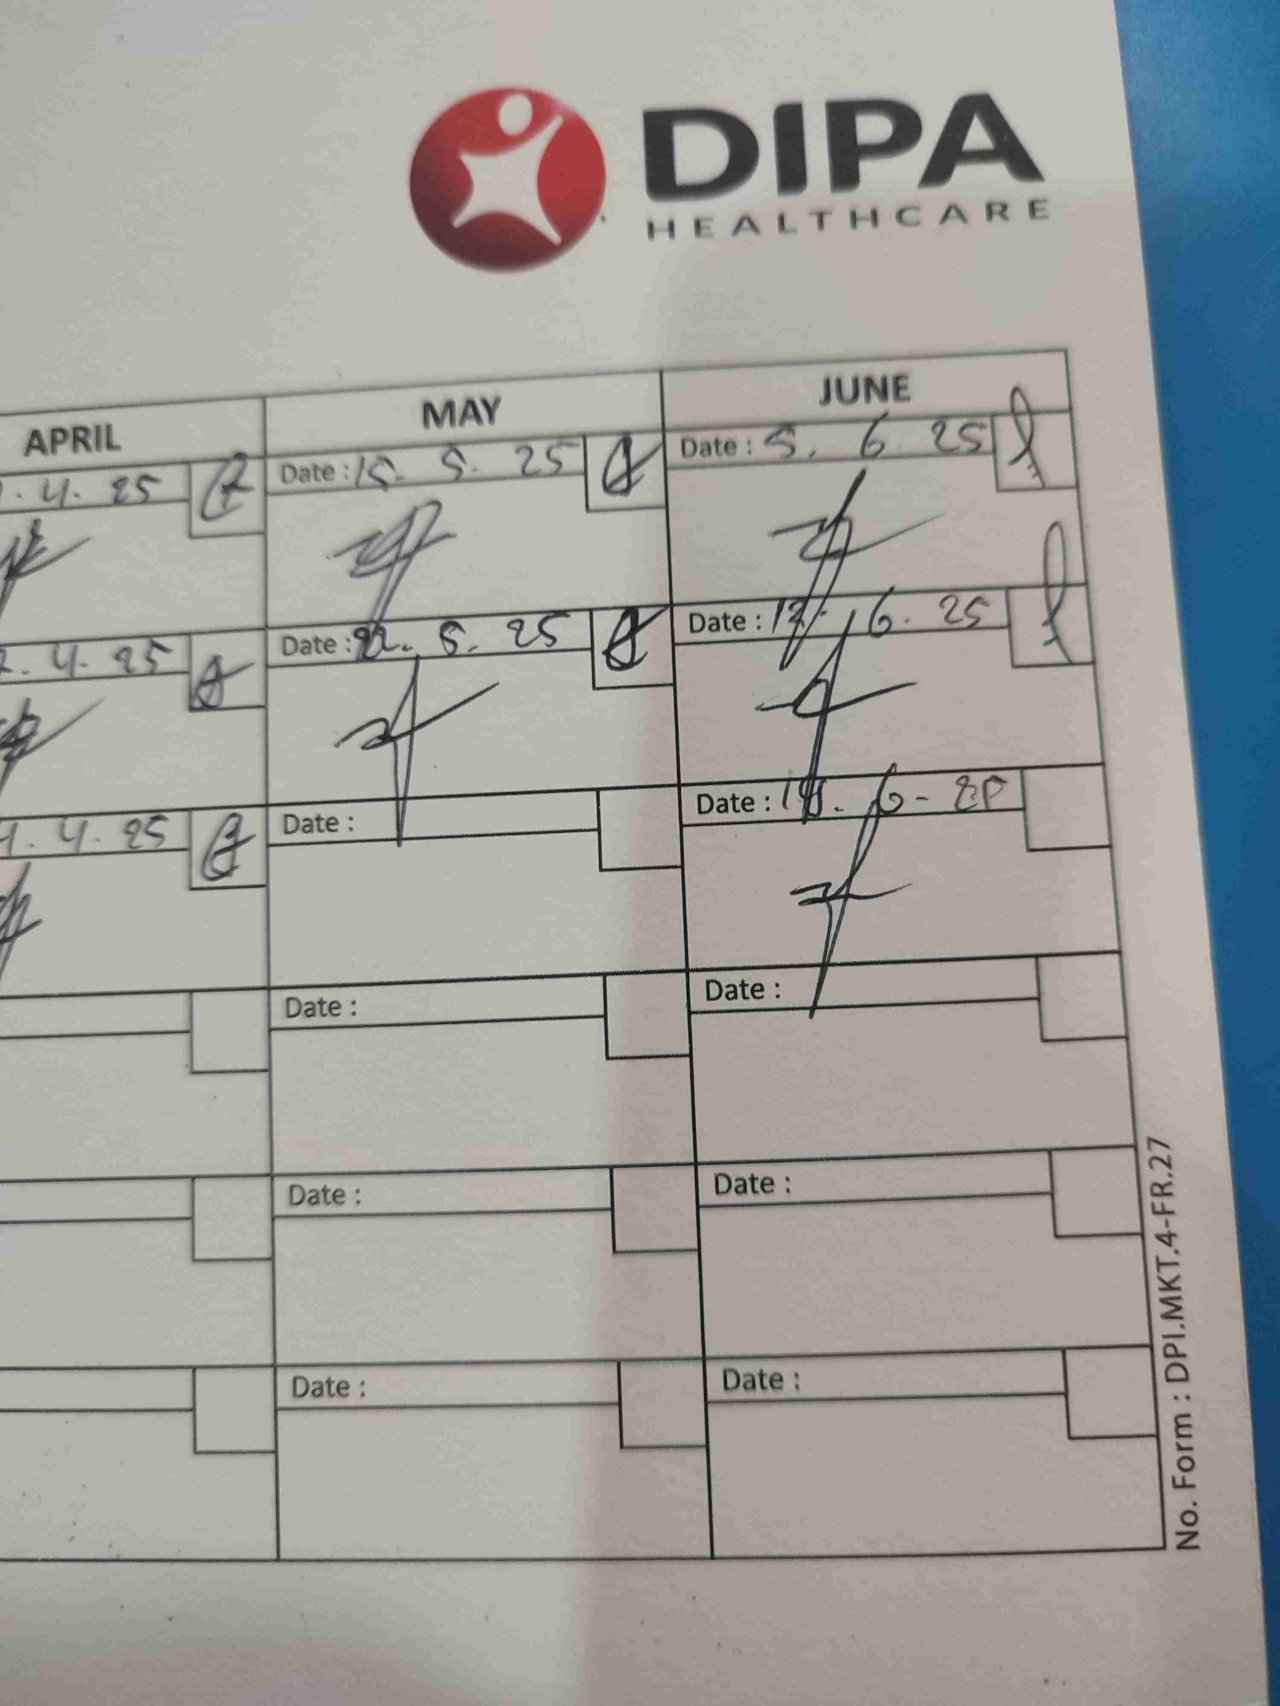 DIPA
HEALTHCARE
APRIL MAY JUNE
.4.25 Date : 15. 5. 25 Date : 5. 6 25
.4.25 Date : 22. 5. 25 Date : 12. 6. 25
.4.25 Date : Date : 6-
Date : Date :
Date : Date :
Date : Date :
No. Form : DPI.MKT.4-FR.27